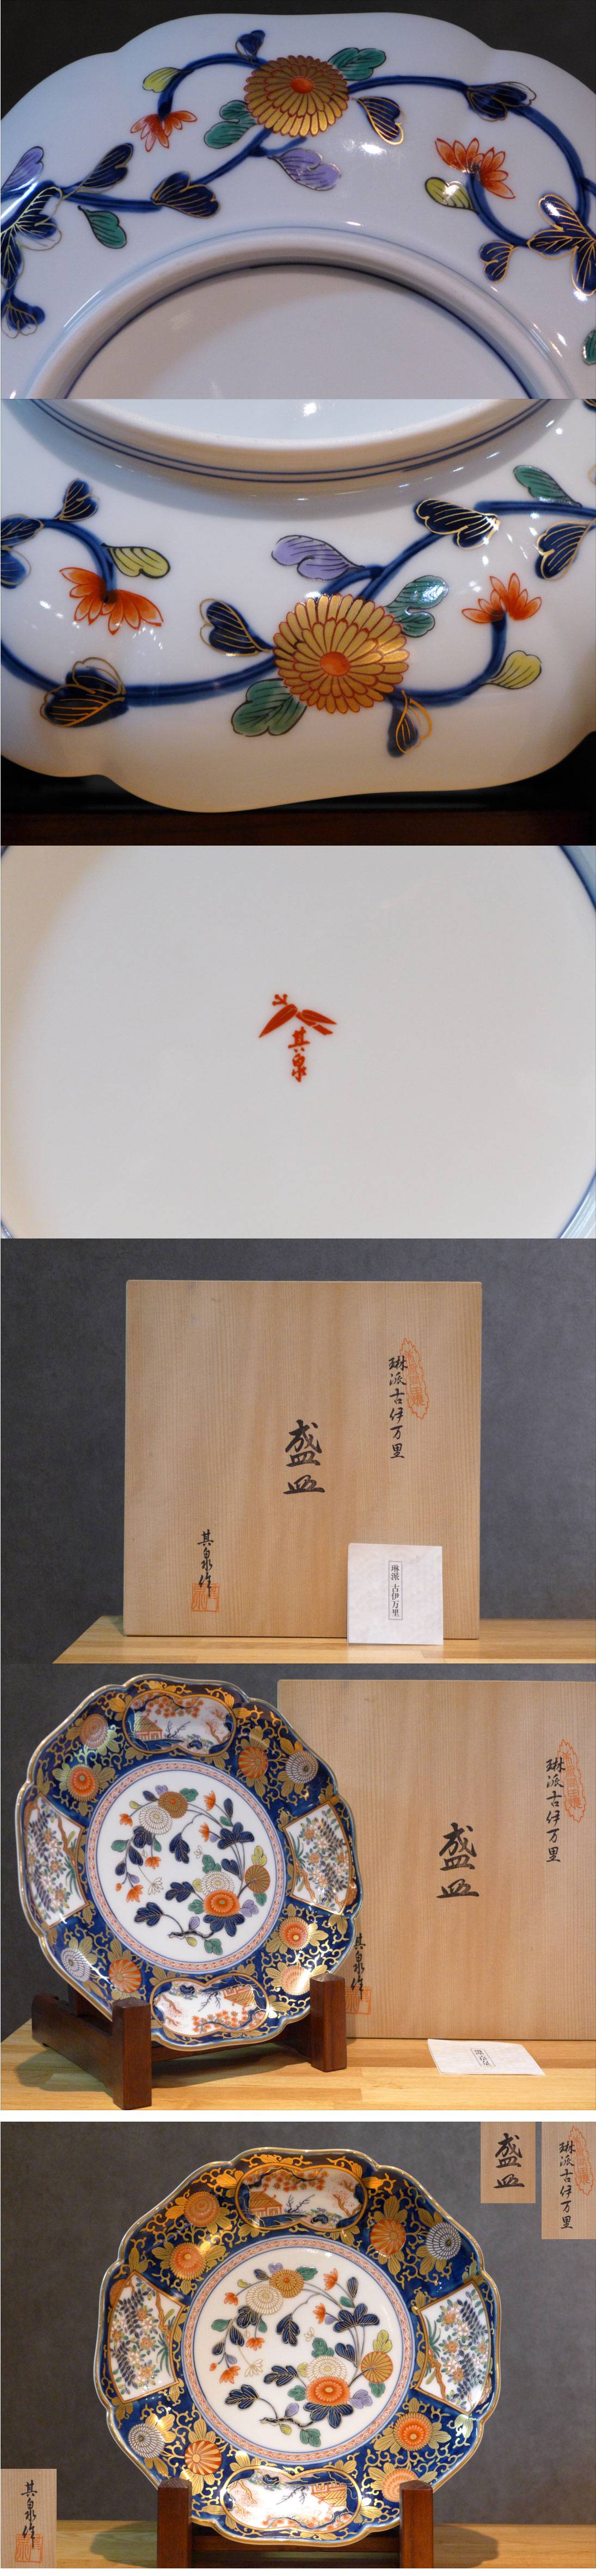 其泉
琳派古伊万里
盛皿
其泉作
琳派 古伊万里
琳派古伊万里
盛皿
其泉作
盛皿
琳派古伊万里
其泉作